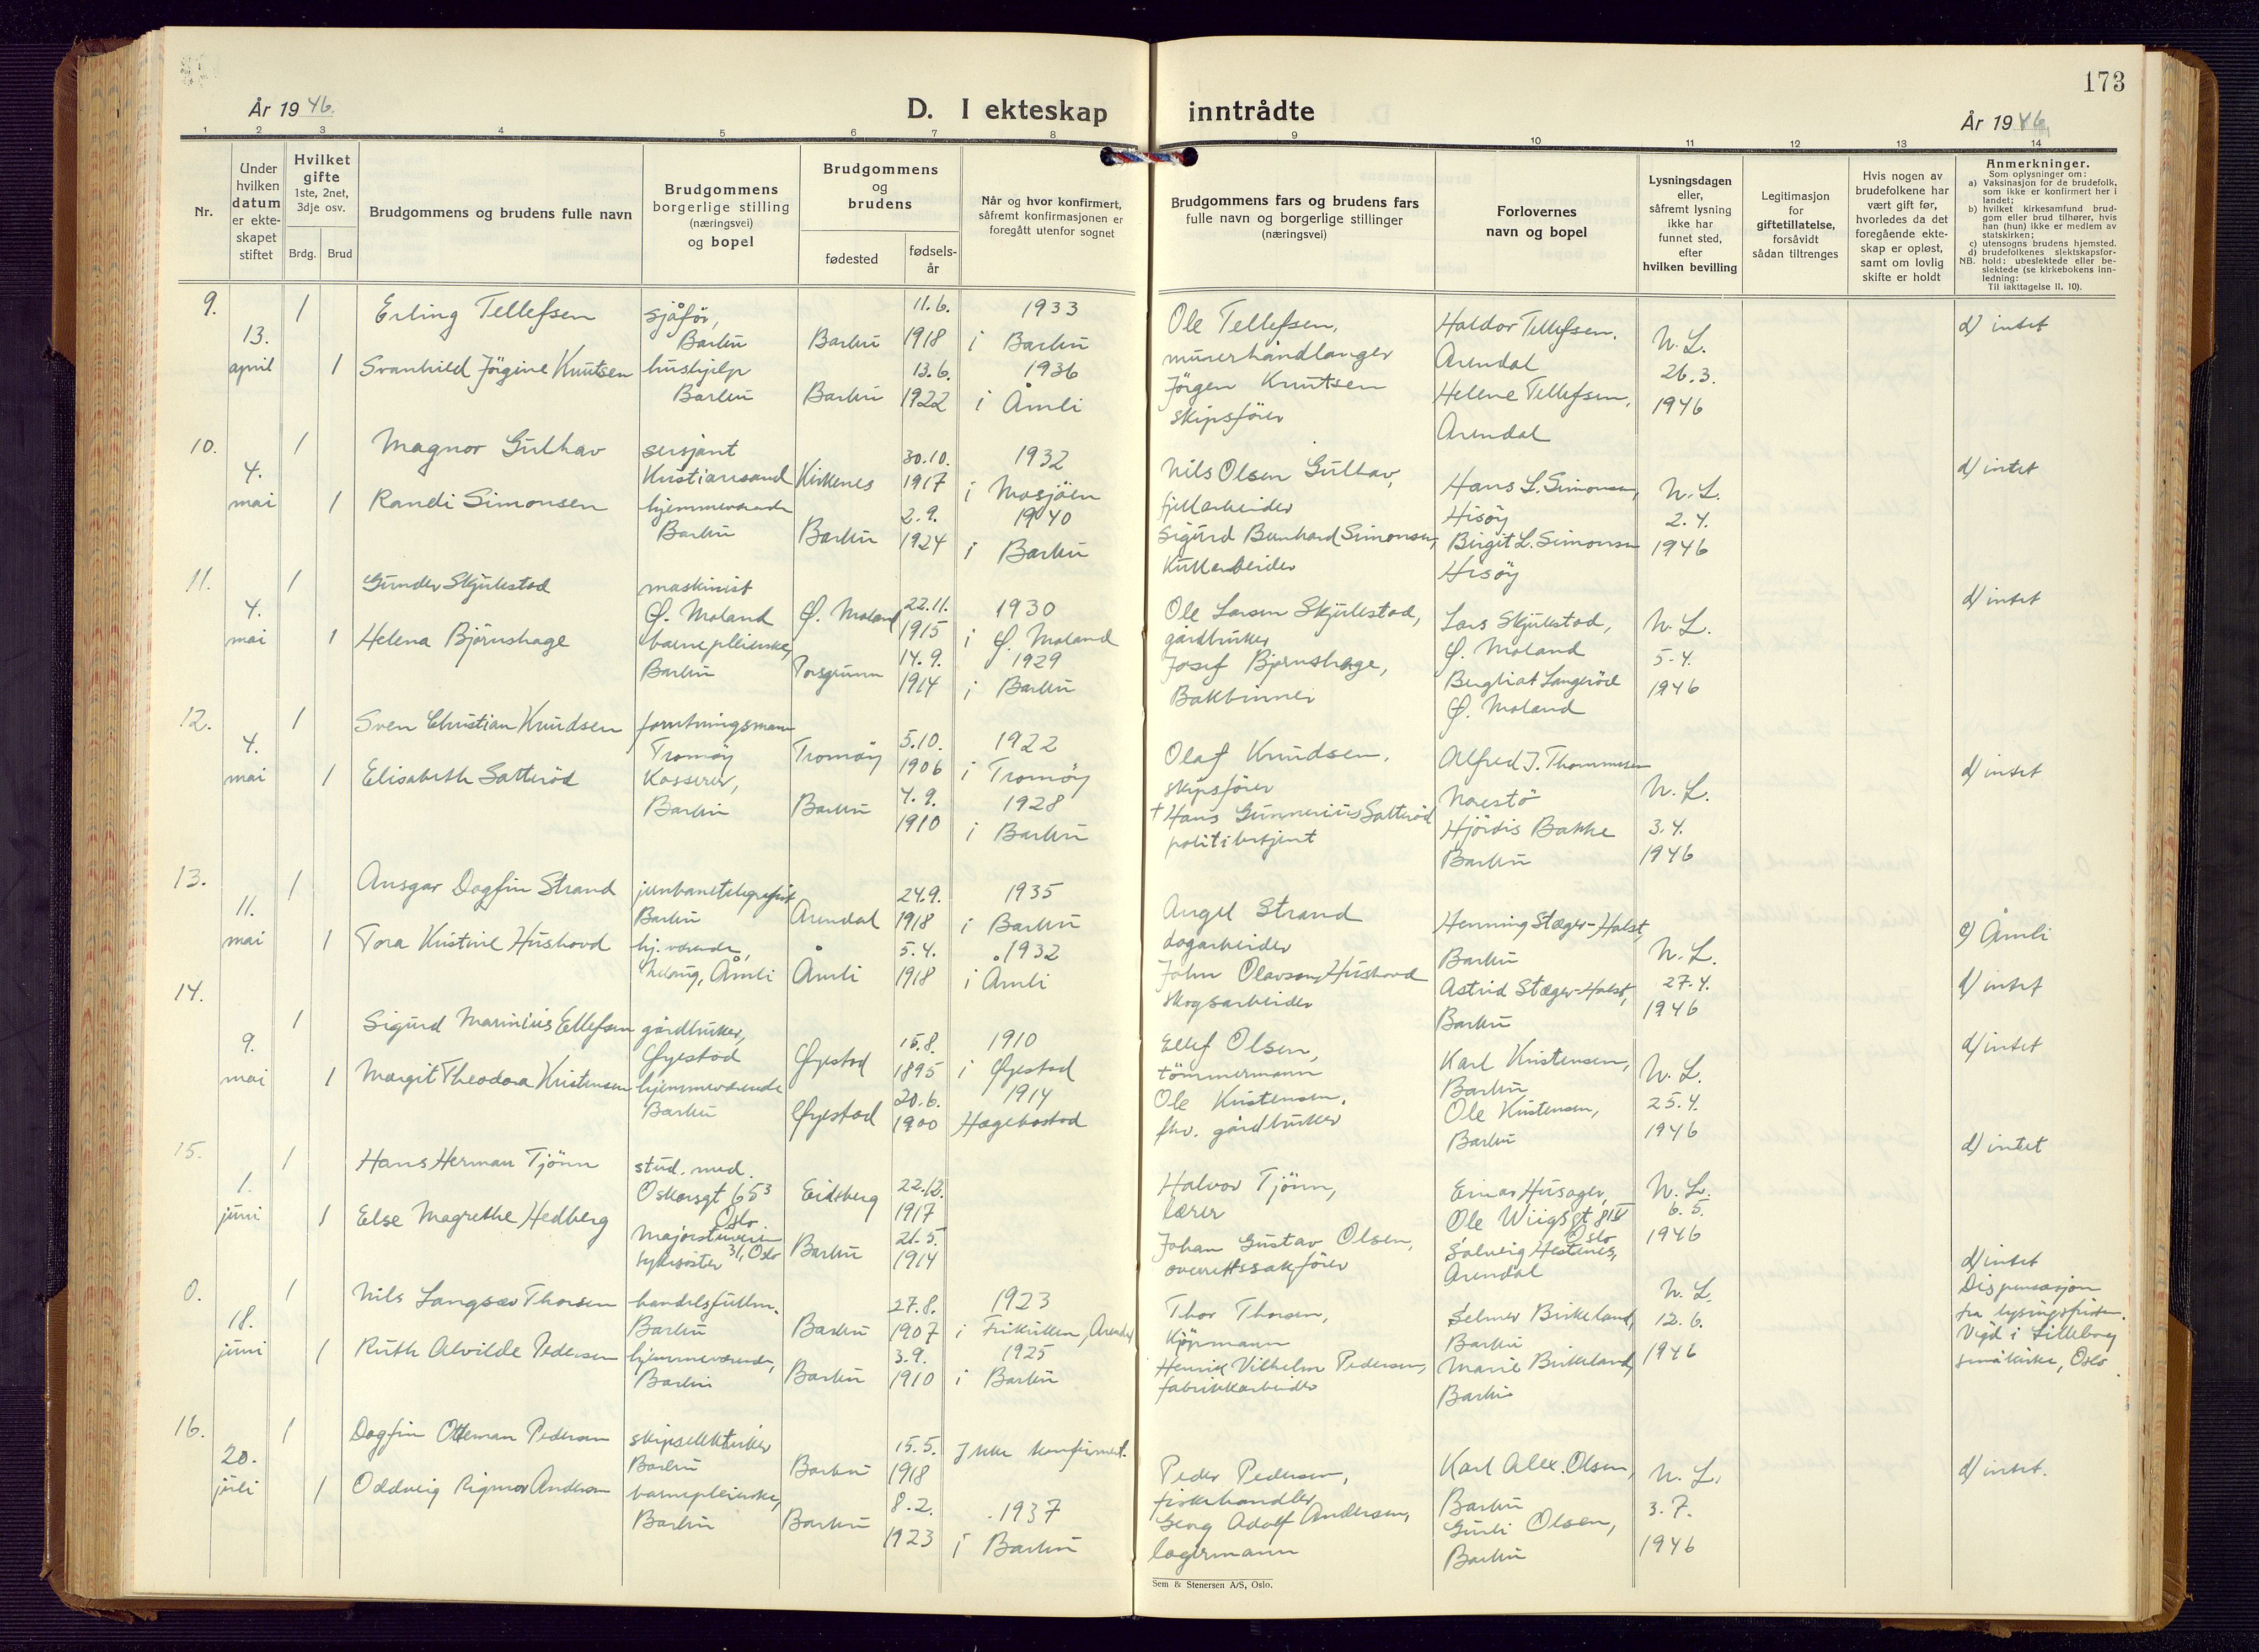 173
År 1946.
D. I ekteskap inntrådte
År 1946
1 2 3 4 5 6 7 8 9 10 11 12 13 14
Nr.
Under hvilken datum er ekte-skapet stiftet
Hvilket gifte 1ste, 2net, 3dje osv.
Brdg. Brud
Brudgommens og brudens fulle navn
Brudgommens borgerlige stilling (næringsvei) og bopel
Brudgommens og brudens
fødested
fødsels-år
Når og hvor konfirmert, såfremt konfirmasjonen er foregått utenfor sognet
Brudgommens fars og brudens fars fulle navn og borgerlige stillinger (næringsvei)
Forlovernes navn og bopel
Lysningsdagen eller, såfremt lysning ikke har funnet sted, efter hvilken bevilling
Legitimasjon for giftetillatelse, forsåvidt sådan tiltrenges
Hvis nogen av brudefolkene har vært gift før, hvorledes da det foregående ekte-skap er opløst, samt om lovlig skifte er holdt
Anmerkninger.
Som oplysninger om:
a) Vaksinasjon for de brudefolk, som ikke er konfirmert her i landet;
b) hvilket kirkesamfund brud-gom eller brud tilhører, hvis han (hun) ikke er medlem av statskirken;
c) utensogns brudens hjemsted.
d) brudefolkenes slektskapsfor-hold: ubeslektede eller be-slektede (se kirkebokens inn-ledning:
NB.
Til iakttagelse II. 10).
9. 13. april
1 Erling Tellefsen sjåför, Barbu Barbu 11.6. 1918 1933 i Barbu
1 Svanhild Jörgine Knutsen hushjelp Barbu Barbu 13.6. 1922 1936 i Åmli
Ole Tellefsen, murerhåndlanger
Jörgen Knutsen skipsförer
Haldor Tellefsen, Arendal
Helene Tellefsen, Arendal
N. L. 26.3. 1946
d) intet
10. 4. mai
1 Magnor Gulhav sersjant Kristiansand Kirkenes 30.10. 1917 1932 i Mosjöen
1 Randi Simonsen hjemmeværende Barbu Barbu 2.9. 1924 1940 i Barbu
Nils Olsen Gulhav, fjellarbeider
Sigurd Bernhard Simonsen, Kullarbeider
Hans L. Simonsen, Hisöy
Birgit L. Simonsen Hisöy
N. L. 2.4. 1946
d) intet
11. 4. mai
1 Gunder Skjulestad maskinist Ø. Moland Ø. Moland 22.11. 1915 1930 i Ø. Moland
1 Helena Björnshage barnepleierske, Barbu Porsgrunn 14.9. 1914 1929 i Barbu
Ole Larsen Skjulestad, gårdbruker
Josef Bjørnshage,
Lars Skjulestad, Ø. Moland
Bergliot Langeröd Ø. Moland
N. L. 5.4. 1946
d) intet
12. 4. mai
1 Sven Christian Knudsen forretningsmann Tromöy Tromöy 5.10. 1906 1922 i Tromöy
1 Elisabeth Satteröd Kasserer, Barbu Barbu 4.9. 1910 1928 i Barbu
Olaf Knudsen, skipsförer
+ Hans Gunnerius Satteröd politibetjent
Alfred J. Thommesen Narestö
Hjördis Bakke Barbu
N. L. 3.4. 1946
d) intet
13. 11. mai
1 Ansgar Dagfin Strand jernbanetelegrafist Barbu Arendal 24.9. 1918 1935 i Barbu
1 Tora Kristine Hushovd hj.værende, Åmli Åmli 5.4. 1918 1932 i Åmli
Angel Strand dagarbeider
John Olavson Hushovd skogsarbeider
Henning Stæger-Holst, Barbu
Astrid Stæger-Holst, Barbu
N. L. 27.4. 1946
c) Åmli
d) intet
14. 9. mai
1 Sigurd Marinius Ellefsen gårdbruker, Øyestad Øyestad 15.8. 1895 1910 i Øyestad
1 Margit Theodora Kristensen hjemmeværende Barbu Øyestad 20.6. 1900 1914 Hægebostad
Ellef Olsen, tömmermann
Ole Kristensen, fhv. gårdbruker
Karl Kristensen, Barbu
Ole Kristensen, Barbu
N. L. 25.4. 1946
d) intet
15. 1. juni
1 Hans Herman Tjönn stud. med. Oskarsgt 65³ Oslo Eidsberg 22.12. 1917
1 Else Magrethe Hedberg Majorstuveien 31, Oslo sykesöster Barbu 21.5. 1914
Halvor Tjönn, lærer
Johan Gustav Olsen, overrettssakförer
Einar Husager, Ole Wiigsgt 8 IV Oslo
Solveig Hestenes, Arendal
N. L. 6.5. 1946
d) intet
0. 18. juni
1 Nils Langsæv Thorsen handelsfullm. Barbu Barbu 27.8. 1907 1923 i Frikirken, Arendal
1 Ruth Alvilde Pedersen hjemmeværende, Barbu Barbu 3.9. 1910 1925 i Barbu
Thor Thorsen, Kjøpmann
Henrik Vilhelm Pedersen, fabrikkarbeider
Selmer Birkeland, Barbu
Marie Birkeland, Barbu
N. L. 12.6. 1946
d) intet
Dispensasjon fra lysingsfristen. Vigd i Lilleborg småkirke, Oslo.
16. 20. juli
1 Dagfin Otteman Pedersen skipselektriker Barbu Barbu 15.5. 1918 Ikke konfirmert.
1 Oddveig Rigmor Andersen barnepleierske, Barbu Barbu 8.2. 1923 1937 i Barbu
Peder Pedersen, fiskehandler
Georg Adolf Andersen, lagermann
Karl Alex. Olsen, Barbu
Gurli Olsen, Barbu
N. L. 3.7. 1946
d) intet.
Sem & Stenersen A/S, Oslo.